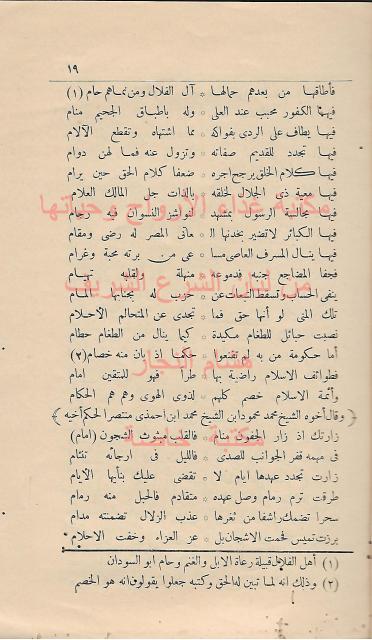 ١٩
فأطاقها من بعدهم حمالها * آل الفلال ومن نماهم حام (١)
فيها الكفور محبب عند العلى * وله باطباق الجحيم منام
فيها يطاف على الردى بفواكه * مما اشتهاه وتقطع الآلام
فيها تجدد للقديم صفاته * وتزول عنه فما لهن دوام
فيها كلام الخلق يرجح اجره * ضعفا كلام الحق حين يرام
فيها معية ذى الجلال لخلقه * بالذات جل المالك العلام
فيها مجالسة الرسول بمشهد * لنواشز النسوان فيه زحام
فيها الكبائر لا تضير بخدنها * المصر له رضى ومقام
فيها ينال المسرف العاصى * من برته محبة وغرام
فجفا المضاجع جنبه فدموعه * منهلة ولقلبه تهيام
ينفى الحساب وتسقط التبعات عن * حزب له بجنابها المام
تلك المنى لو أنها حق فما * تجدى عن المتحالم الاحلام
نصبت حبائل للطغام مكيدة * كيما ينال من الطغام حطام
أما حكومة من به لم تقنعوا * حكما اذ بان منه خصام (٢)
فطوائف الاسلام راضية بها * طرا فهو للمتقين امام
وأئمة الاسلام خصم كلهم * لذوى الهوى وهم هم الحكام
﴿ وقال أخوه الشيخ محمد محمود ابن الشيخ محمد ابن احمذى منتصرا لحكم أخيه ﴾
زارتك اذ زار الجفون منام * فالقلب مبثوث الشجون (امام)
فى مهمه قفر الجوانب للصدى * فالليل فى ارجائه تنئام
زارت تجدد عهدها ايام لا * تقضى عليك بنأيها الآيام
طرقت ترم رمام وصل عهده * متقادم فالحبل منه رمام
سحرا تضمك راشفا من ثغرها * عذب الزلال تضمنته مدام
برزت تميس فحمت الاشجان بل * عز العزاء وخفت الاحلام
(١) أهل الفلال قبيلة رعاة الابل والغنم وحام ابو السودان
(٢) وذلك انه لما تبين له الحق وكتبه جعلوا يقولون انه هو الخصم
مكتبة غذاء الأرواح وحياتها
من لبان الشرع الشريف
هشام النجار
مكتبة خاصة